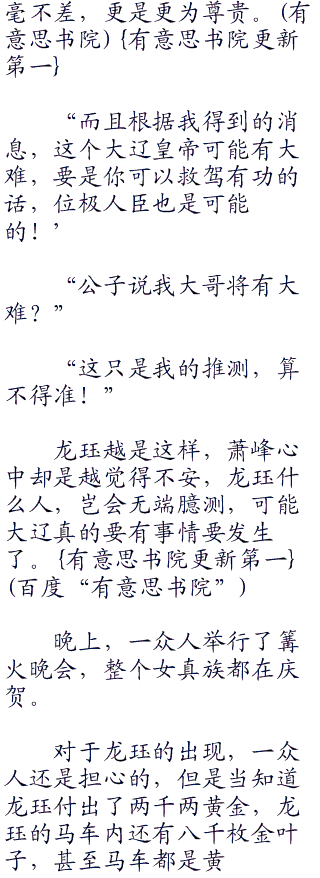 毫不差，更是更为尊贵。(有
意思书院) {有意思书院更新
第一}
“而且根据我得到的消
息，这个大辽皇帝可能有大
难，要是你可以救驾有功的
话，位极人臣也是可能
的！’
“公子说我大哥将有大
难？”
“这只是我的推测，算
不得准！”
龙珏越是这样，萧峰心
中却是越觉得不安，龙珏什
么人，岂会无端臆测，可能
大辽真的要有事情要发生
了。{有意思书院更新第一}
(百度“有意思书院”)
晚上，一众人举行了篝
火晚会，整个女真族都在庆
贺。
对于龙珏的出现，一众
人还是担心的，但是当知道
龙珏付出了两千两黄金，龙
珏的马车内还有八千枚金叶
子，甚至马车都是黄